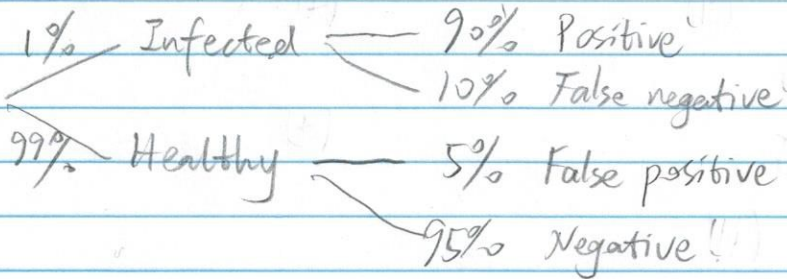 1% Infected 90% Positive
10% False negative
99% Healthy 5% False positive
95% Negative!